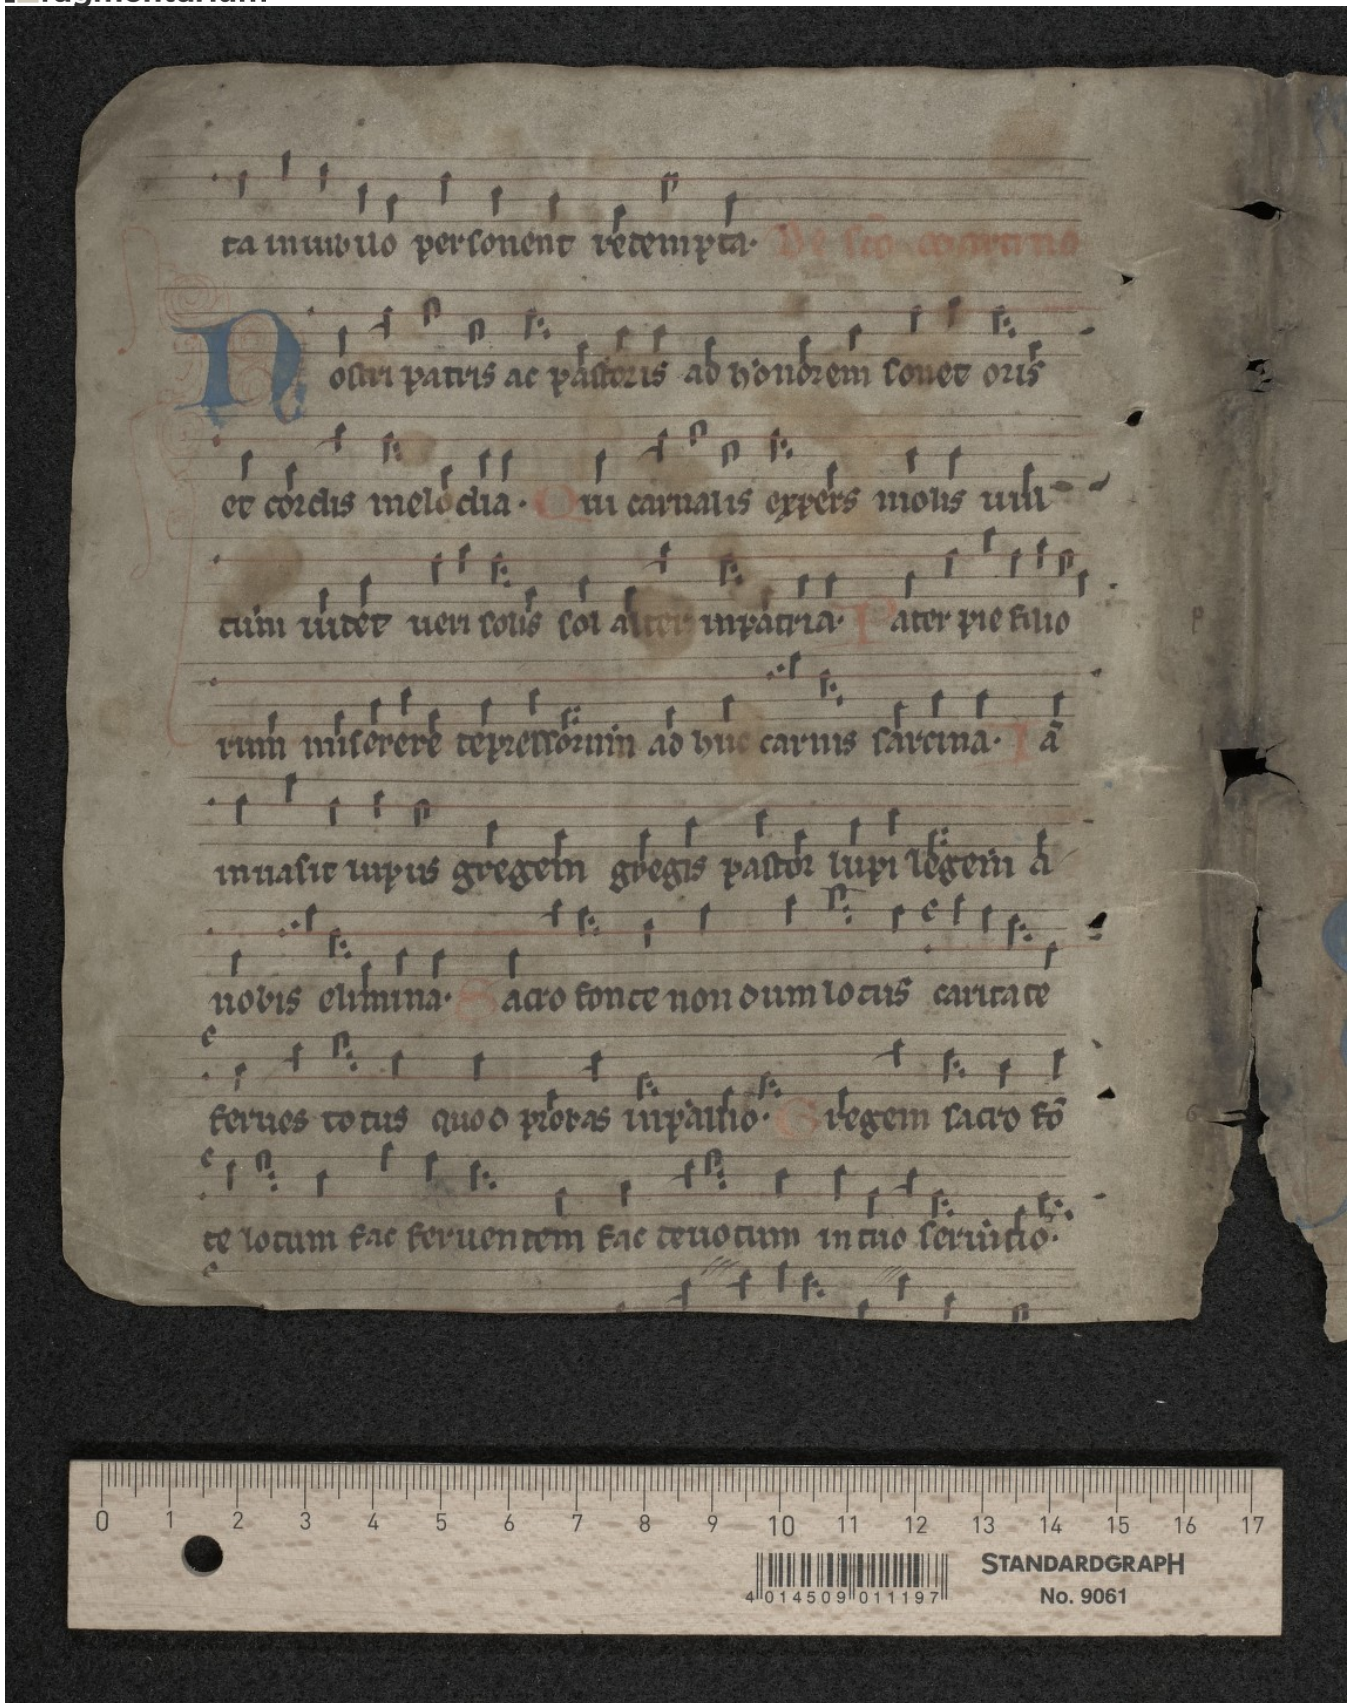 fragmentarium
ta in iubilo personent redempta. De sco martino
Nostri patris ac pastoris ad honorem sonet oris
et cordis melodia. Qui carnalis expers molis uul
tum uidet ueri solis sol alter in patria. Pater pie filio
rum miserere depressorum ad huc carnis sarcina. Iā
inuasit lupus gregem gregis pastor lupi legem a
nobis elimina. Sacro fonte non dum lotus caritate
ferues totus quod probas in pallio. Gregem sacro fō
te lotum fac feruentem fac deuotum in tuo seruitio.
0 1 2 3 4 5 6 7 8 9 10 11 12 13 14 15 16 17
STANDARDGRAPH
No. 9061
4 014509 011197